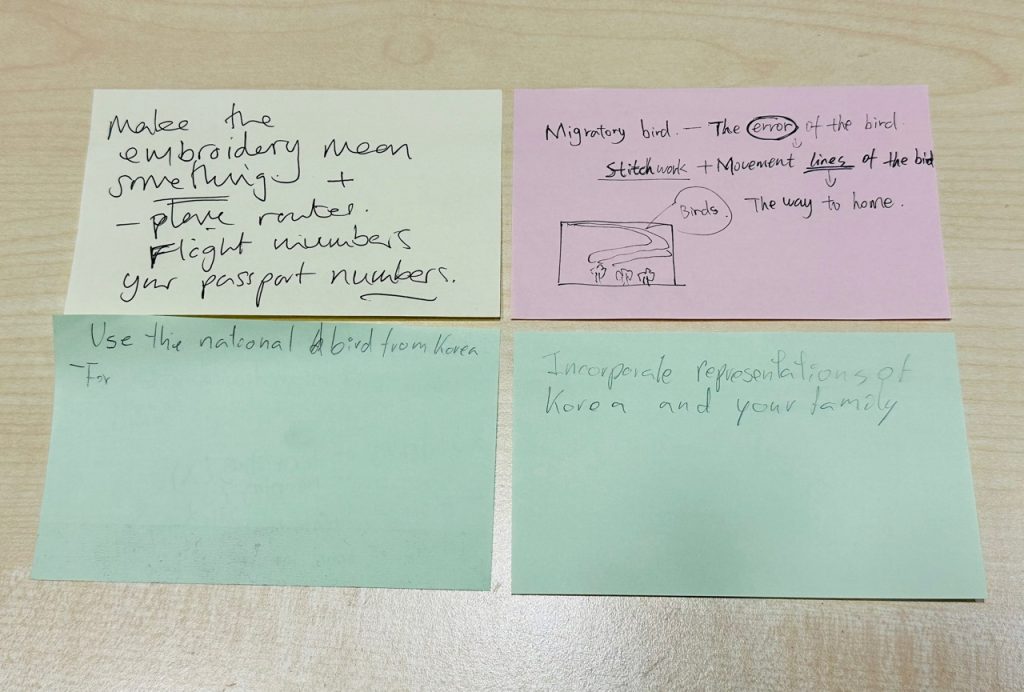 Make the
embroidery mean
something. +
- plane routes.
Flight numbers
your passport numbers.
Migratory bird. — The error of the bird.
Stitchwork + Movement lines of the bird
The way to home.
Birds.
Use the national bird from Korea
- For
Incorporate representations of
Korea and your family